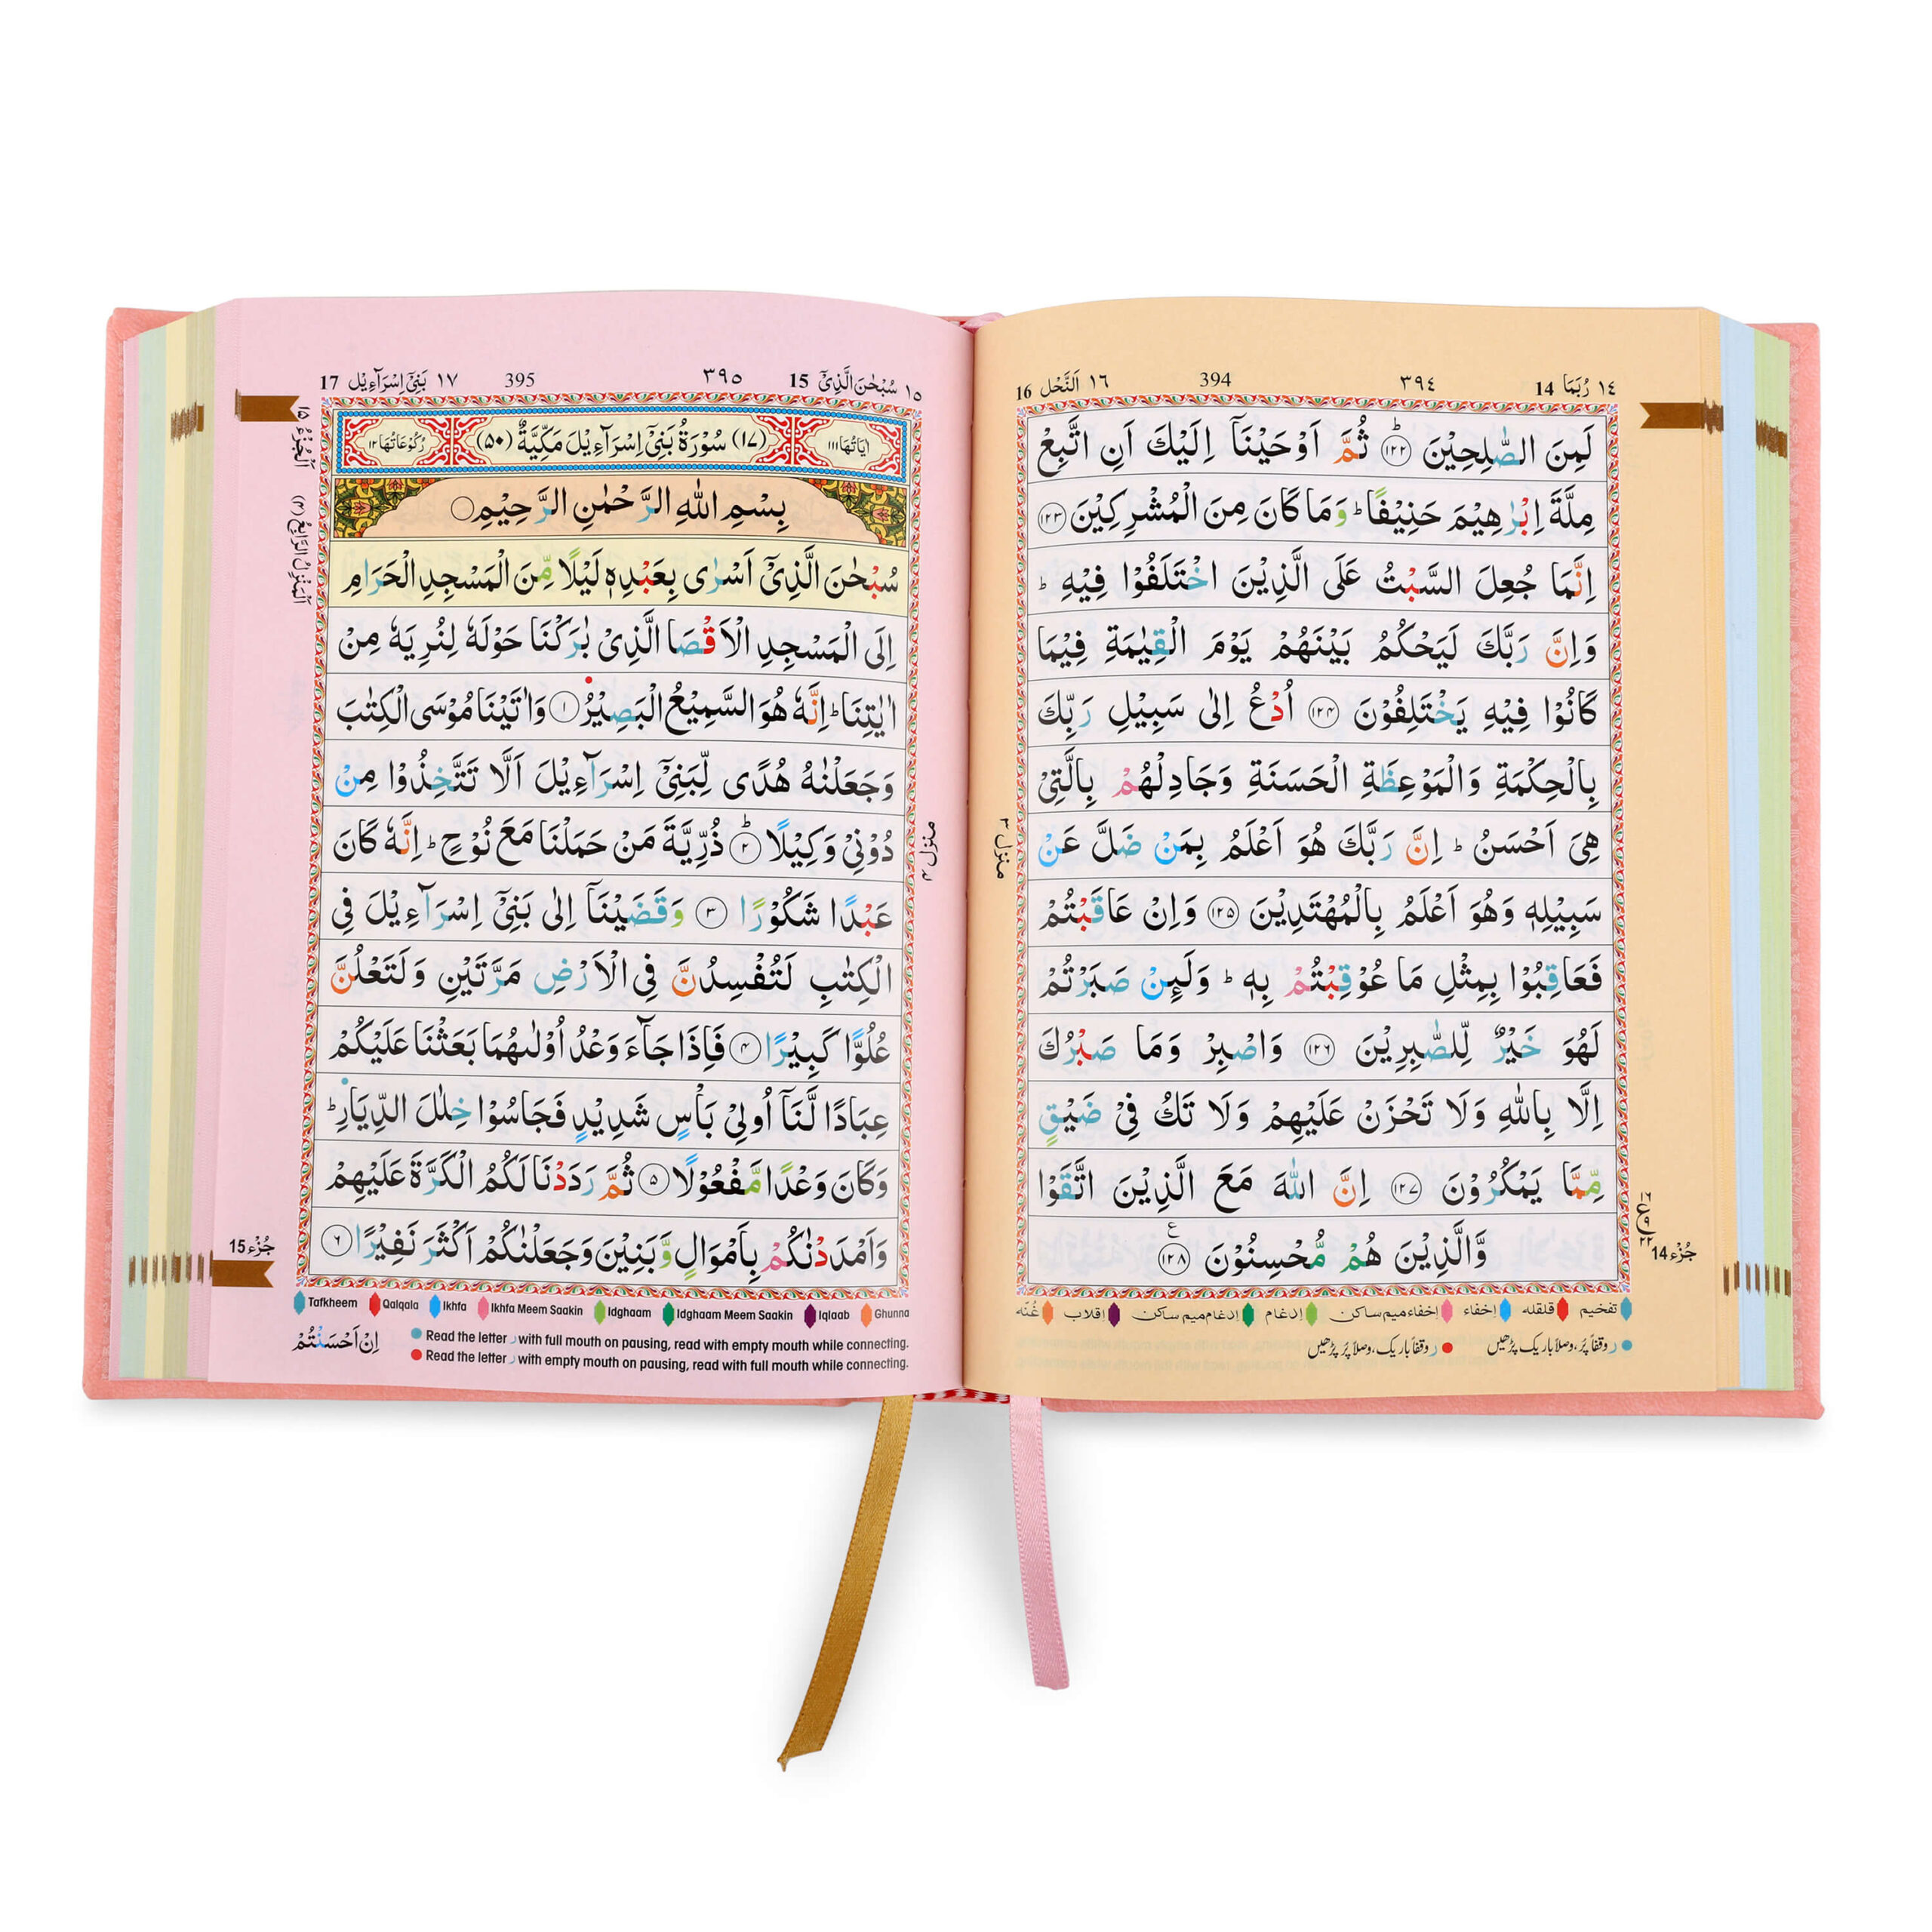 ١٤ رُبَمَا 14 ٣٩٤ 394 ١٦ اَلنَّحْل 16
لَمِنَ الصّٰلِحِيْنَ ﴿۱۲۲﴾ ثُمَّ اَوْحَيْنَاۤ اِلَيْكَ اَنِ اتَّبِعْ
مِلَّةَ اِبْرٰهِيْمَ حَنِيْفًا ؕ وَمَا كَانَ مِنَ الْمُشْرِكِيْنَ ﴿۱۲۳﴾
اِنَّمَا جُعِلَ السَّبْتُ عَلَى الَّذِيْنَ اخْتَلَفُوْا فِيْهِ ؕ
وَاِنَّ رَبَّكَ لَيَحْكُمُ بَيْنَهُمْ يَوْمَ الْقِيٰمَةِ فِيْمَا
كَانُوْا فِيْهِ يَخْتَلِفُوْنَ ﴿۱۲۴﴾ اُدْعُ اِلٰى سَبِيْلِ رَبِّكَ
بِالْحِكْمَةِ وَالْمَوْعِظَةِ الْحَسَنَةِ وَجَادِلْهُمْ بِالَّتِيْ
هِيَ اَحْسَنُ ؕ اِنَّ رَبَّكَ هُوَ اَعْلَمُ بِمَنْ ضَلَّ عَنْ
سَبِيْلِهٖ وَهُوَ اَعْلَمُ بِالْمُهْتَدِيْنَ ﴿۱۲۵﴾ وَاِنْ عَاقَبْتُمْ
فَعَاقِبُوْا بِمِثْلِ مَا عُوْقِبْتُمْ بِهٖ ؕ وَلَىِٕنْ صَبَرْتُمْ
لَهُوَ خَيْرٌ لِّلصّٰبِرِيْنَ ﴿۱۲۶﴾ وَاصْبِرْ وَمَا صَبْرُكَ
اِلَّا بِاللّٰهِ وَلَا تَحْزَنْ عَلَيْهِمْ وَلَا تَكُ فِيْ ضَيْقٍ
مِّمَّا يَمْكُرُوْنَ ﴿۱۲۷﴾ اِنَّ اللّٰهَ مَعَ الَّذِيْنَ اتَّقَوْا
وَّالَّذِيْنَ هُمْ مُّحْسِنُوْنَ ﴿۱۲۸﴾
جُزْء 14
منزل ٣
تفخيم قلقله إخفاء إخفاء ميم ساكن إدغام إدغام ميم ساكن إقلاب غُنّه
ر وقفاً پُر، وصلاً باریک پڑھیں ر وقفاً باریک، وصلاً پُر پڑھیں
١٥ سُبْحٰنَ الَّذِيْۤ 15 ٣٩٥ 395 ١٧ بَنِيْۤ اِسْرَآءِيْل 17
اٰيَاتُهَا ۱۱۱ (۱۷) سُوْرَةُ بَنِيْۤ اِسْرَآءِيْلَ مَكِّيَّةٌ (۵۰) رُكُوْعَاتُهَا ۱۲
بِسْمِ اللّٰهِ الرَّحْمٰنِ الرَّحِيْمِ
سُبْحٰنَ الَّذِيْۤ اَسْرٰى بِعَبْدِهٖ لَيْلًا مِّنَ الْمَسْجِدِ الْحَرَامِ
اِلَى الْمَسْجِدِ الْاَقْصَا الَّذِيْ بٰرَكْنَا حَوْلَهٗ لِنُرِيَهٗ مِنْ
اٰيٰتِنَا ؕ اِنَّهٗ هُوَ السَّمِيْعُ الْبَصِيْرُ ﴿۱﴾ وَاٰتَيْنَا مُوْسَى الْكِتٰبَ
وَجَعَلْنٰهُ هُدًى لِّبَنِيْۤ اِسْرَآءِيْلَ اَلَّا تَتَّخِذُوْا مِنْ
دُوْنِيْ وَكِيْلًا ﴿۲﴾ ذُرِّيَّةَ مَنْ حَمَلْنَا مَعَ نُوْحٍ ؕ اِنَّهٗ كَانَ
عَبْدًا شَكُوْرًا ﴿۳﴾ وَقَضَيْنَاۤ اِلٰى بَنِيْۤ اِسْرَآءِيْلَ فِى
الْكِتٰبِ لَتُفْسِدُنَّ فِى الْاَرْضِ مَرَّتَيْنِ وَلَتَعْلُنَّ
عُلُوًّا كَبِيْرًا ﴿۴﴾ فَاِذَا جَآءَ وَعْدُ اُوْلٰىهُمَا بَعَثْنَا عَلَيْكُمْ
عِبَادًا لَّنَاۤ اُولِيْ بَاْسٍ شَدِيْدٍ فَجَاسُوْا خِلٰلَ الدِّيَارِ ؕ
وَكَانَ وَعْدًا مَّفْعُوْلًا ﴿۵﴾ ثُمَّ رَدَدْنَا لَكُمُ الْكَرَّةَ عَلَيْهِمْ
وَاَمْدَدْنٰكُمْ بِاَمْوَالٍ وَّبَنِيْنَ وَجَعَلْنٰكُمْ اَكْثَرَ نَفِيْرًا ﴿۶﴾
اَلْجُزْءُ ١٥
اَلْمَنْزِلُ الرَّابِعُ (٤)
منزل ٤
جُزْء 15
Tafkheem Qalqala Ikhfa Ikhfa Meem Saakin Idghaam Idghaam Meem Saakin Iqlaab Ghunna
Read the letter ر with full mouth on pausing, read with empty mouth while connecting.
Read the letter ر with empty mouth on pausing, read with full mouth while connecting.
اِنْ اَحْسَنْتُمْ